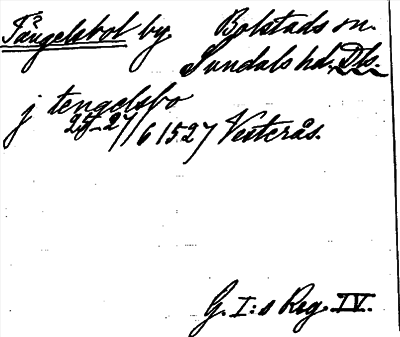 Tängelsbol by. Bolstads sn.
Sundals hd, Dls.
j tengelsbo
25-27/6 1527 Vesterås.
G. I:s Reg. IV.